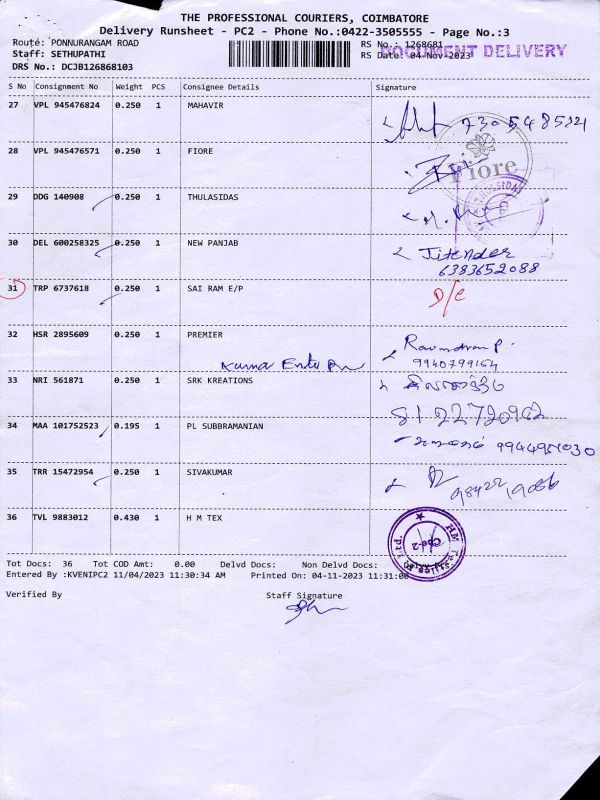 THE PROFESSIONAL COURIERS, COIMBATORE
Delivery Runsheet - PC2 - Phone No.:0422-3505555 - Page No.:3
Route: PONNURANGAM ROAD RS No.: 1268681
Staff: SETHUPATHI RS Date: 04-Nov-2023
DOCUMENT DELIVERY
DRS No.: DCJB126868103
S No Consignment No Weight PCS Consignee Details Signature
27 VPL 945476824 0.250 1 MAHAVIR
28 VPL 945476571 0.250 1 FIORE
Fiore
29 DDG 140908 0.250 1 THULASIDAS
30 DEL 600258325 0.250 1 NEW PANJAB Jitender
6383652088
31 TRP 6737618 0.250 1 SAI RAM E/P D/C
32 HSR 2895609 0.250 1 PREMIER
9940799164
33 NRI 561871 0.250 1 SRK KREATIONS
34 MAA 101752523 0.195 1 PL SUBBRAMANIAN
35 TRR 15472954 0.250 1 SIVAKUMAR
36 TVL 9883012 0.430 1 H M TEX
Tot Docs: 36 Tot COD Amt: 0.00 Delvd Docs: Non Delvd Docs:
Entered By :KVENIPC2 11/04/2023 11:30:34 AM Printed On: 04-11-2023 11:31:00
Verified By Staff Signature